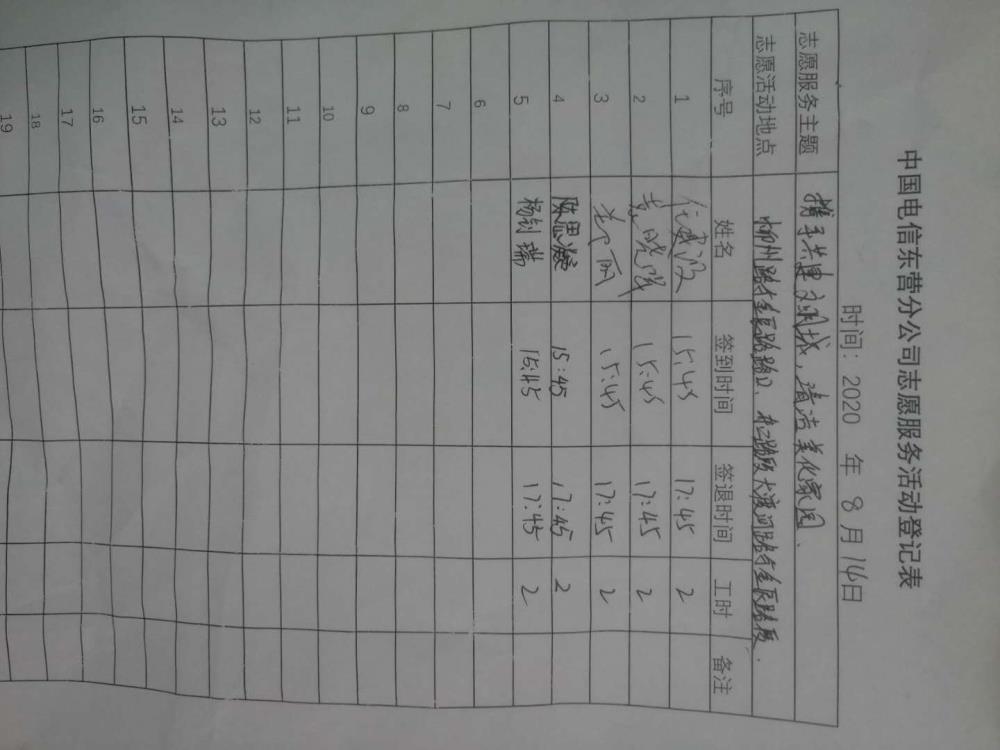 中国电信东营分公司志愿服务活动登记表
时间：2020 年 8 月 14日
志愿服务主题 携手共建文明城，清洁美化家园.
志愿活动地点 柳州路与金辰路路口、
序号 姓名 签到时间 签退时间 工时 备注
1 15:45 17:45 2
2 15:45 17:45 2
3 15:45 17:45 2
4 陈思凝 15:45 17:45 2
5 杨钊瑞 15:45 17:45 2
6
7
8
9
10
11
12
13
14
15
16
17
18
19